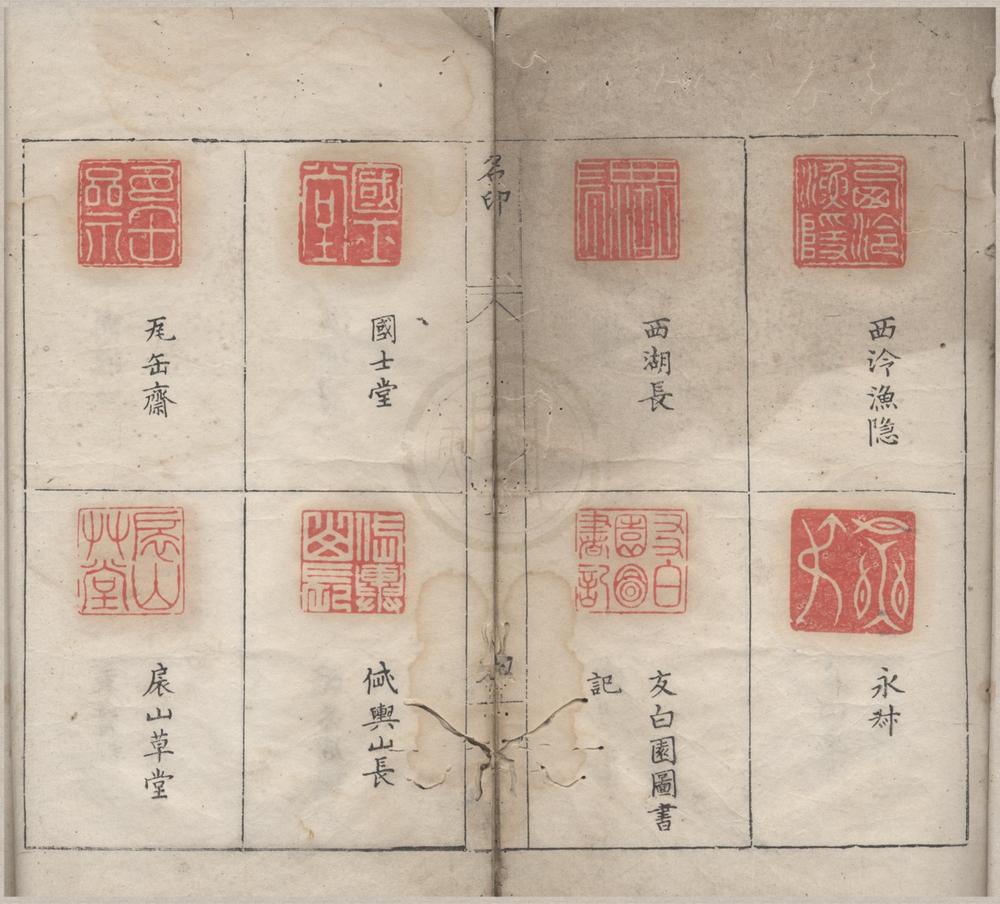 西泠漁隐
永叔
西湖長
友白園圖書
記
名印
八
國士堂
俶輿山長
瓦缶齋
扆山草堂